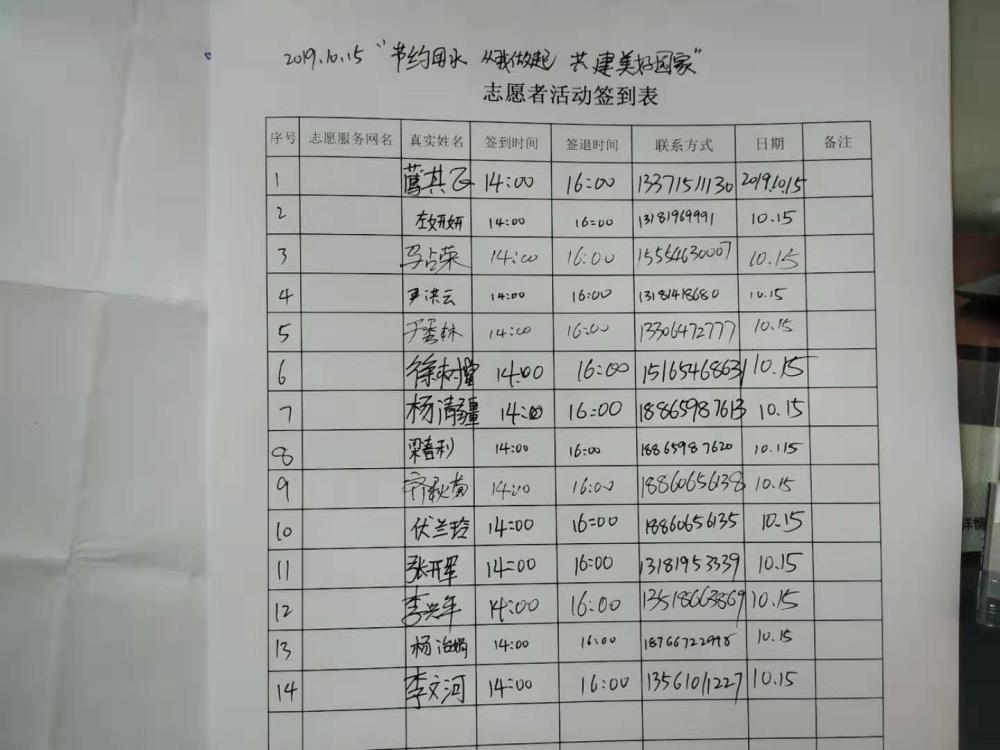 2019.10.15 "节约用水 从我做起 共建美好国家"
志愿者活动签到表
序号 志愿服务网名 真实姓名 签到时间 签退时间 联系方式 日期 备注
1 其飞 14:00 16:00 13371511130 2019.10.15
2 李妍妍 14:00 16:00 13181969991 10.15
3 马占荣 14:00 16:00 15554630007 10.15
4 尹洪云 14:00 16:00 13181418680 10.15
5 林 14:00 16:00 13306472777 10.15
6 徐树堂 14:00 16:00 15165468631 10.15
7 杨清疆 14:00 16:00 18865987613 10.15
8 梁春利 14:00 16:00 18865987620 10.115
9 齐秋菊 14:00 16:00 18860656138 10.15
10 伏兰玲 14:00 16:00 18860656135 10.15
11 张开军 14:00 16:00 13181953339 10.15
12 李兴年 14:00 16:00 13518663869 10.15
13 杨治娟 14:00 16:00 18766722998 10.15
14 李文河 14:00 16:00 13561011227 10.15
详情